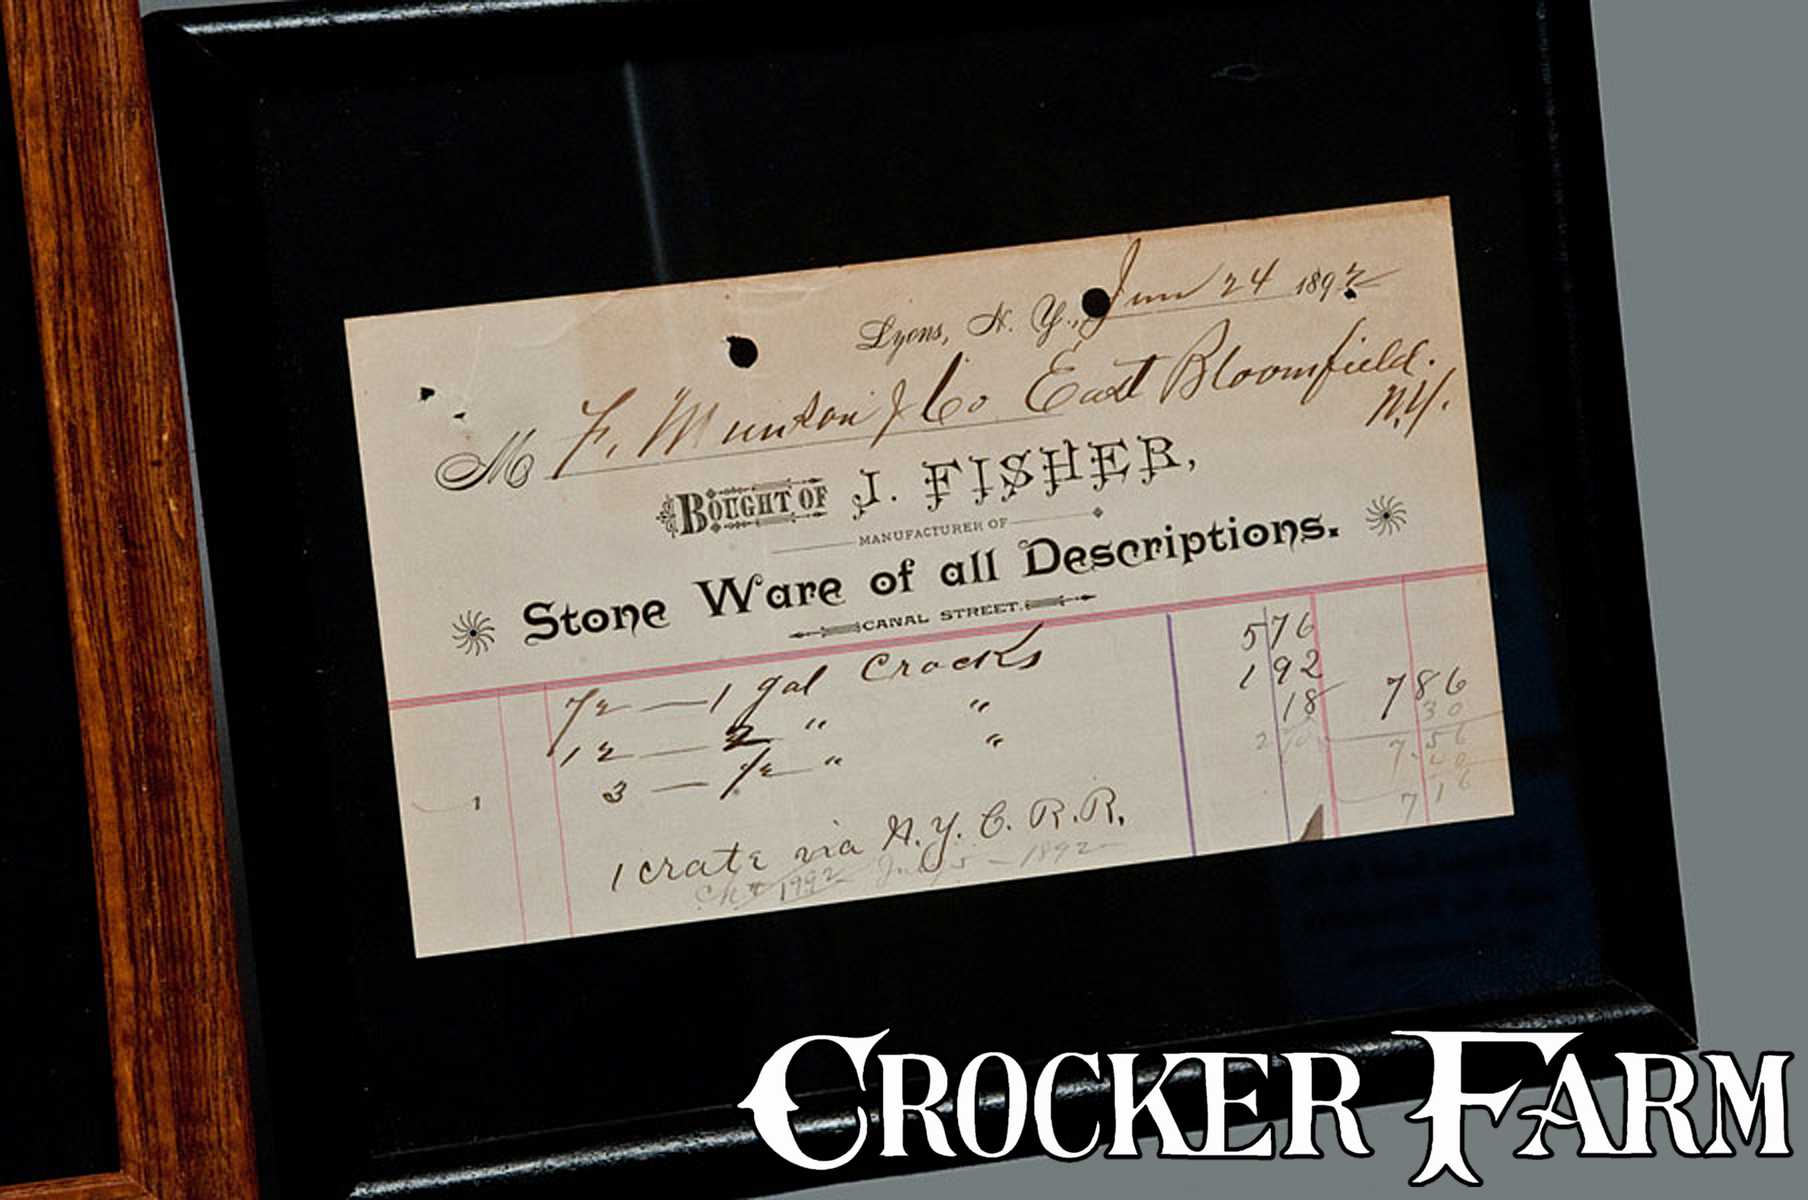 Lyons, N. Y., June 24 1892
M F. Munson & Co East Bloomfield.
N.Y.
BOUGHT OF J. FISHER,
MANUFACTURER OF
Stone Ware of all Descriptions.
CANAL STREET.
72 — 1 gal Crocks 576
12 — 2 " " 192
3 — 1/2 " " 18 786
30
756
1
716
1 crate via N.Y.C.R.R.
July 5 - 1892
CROCKER FARM